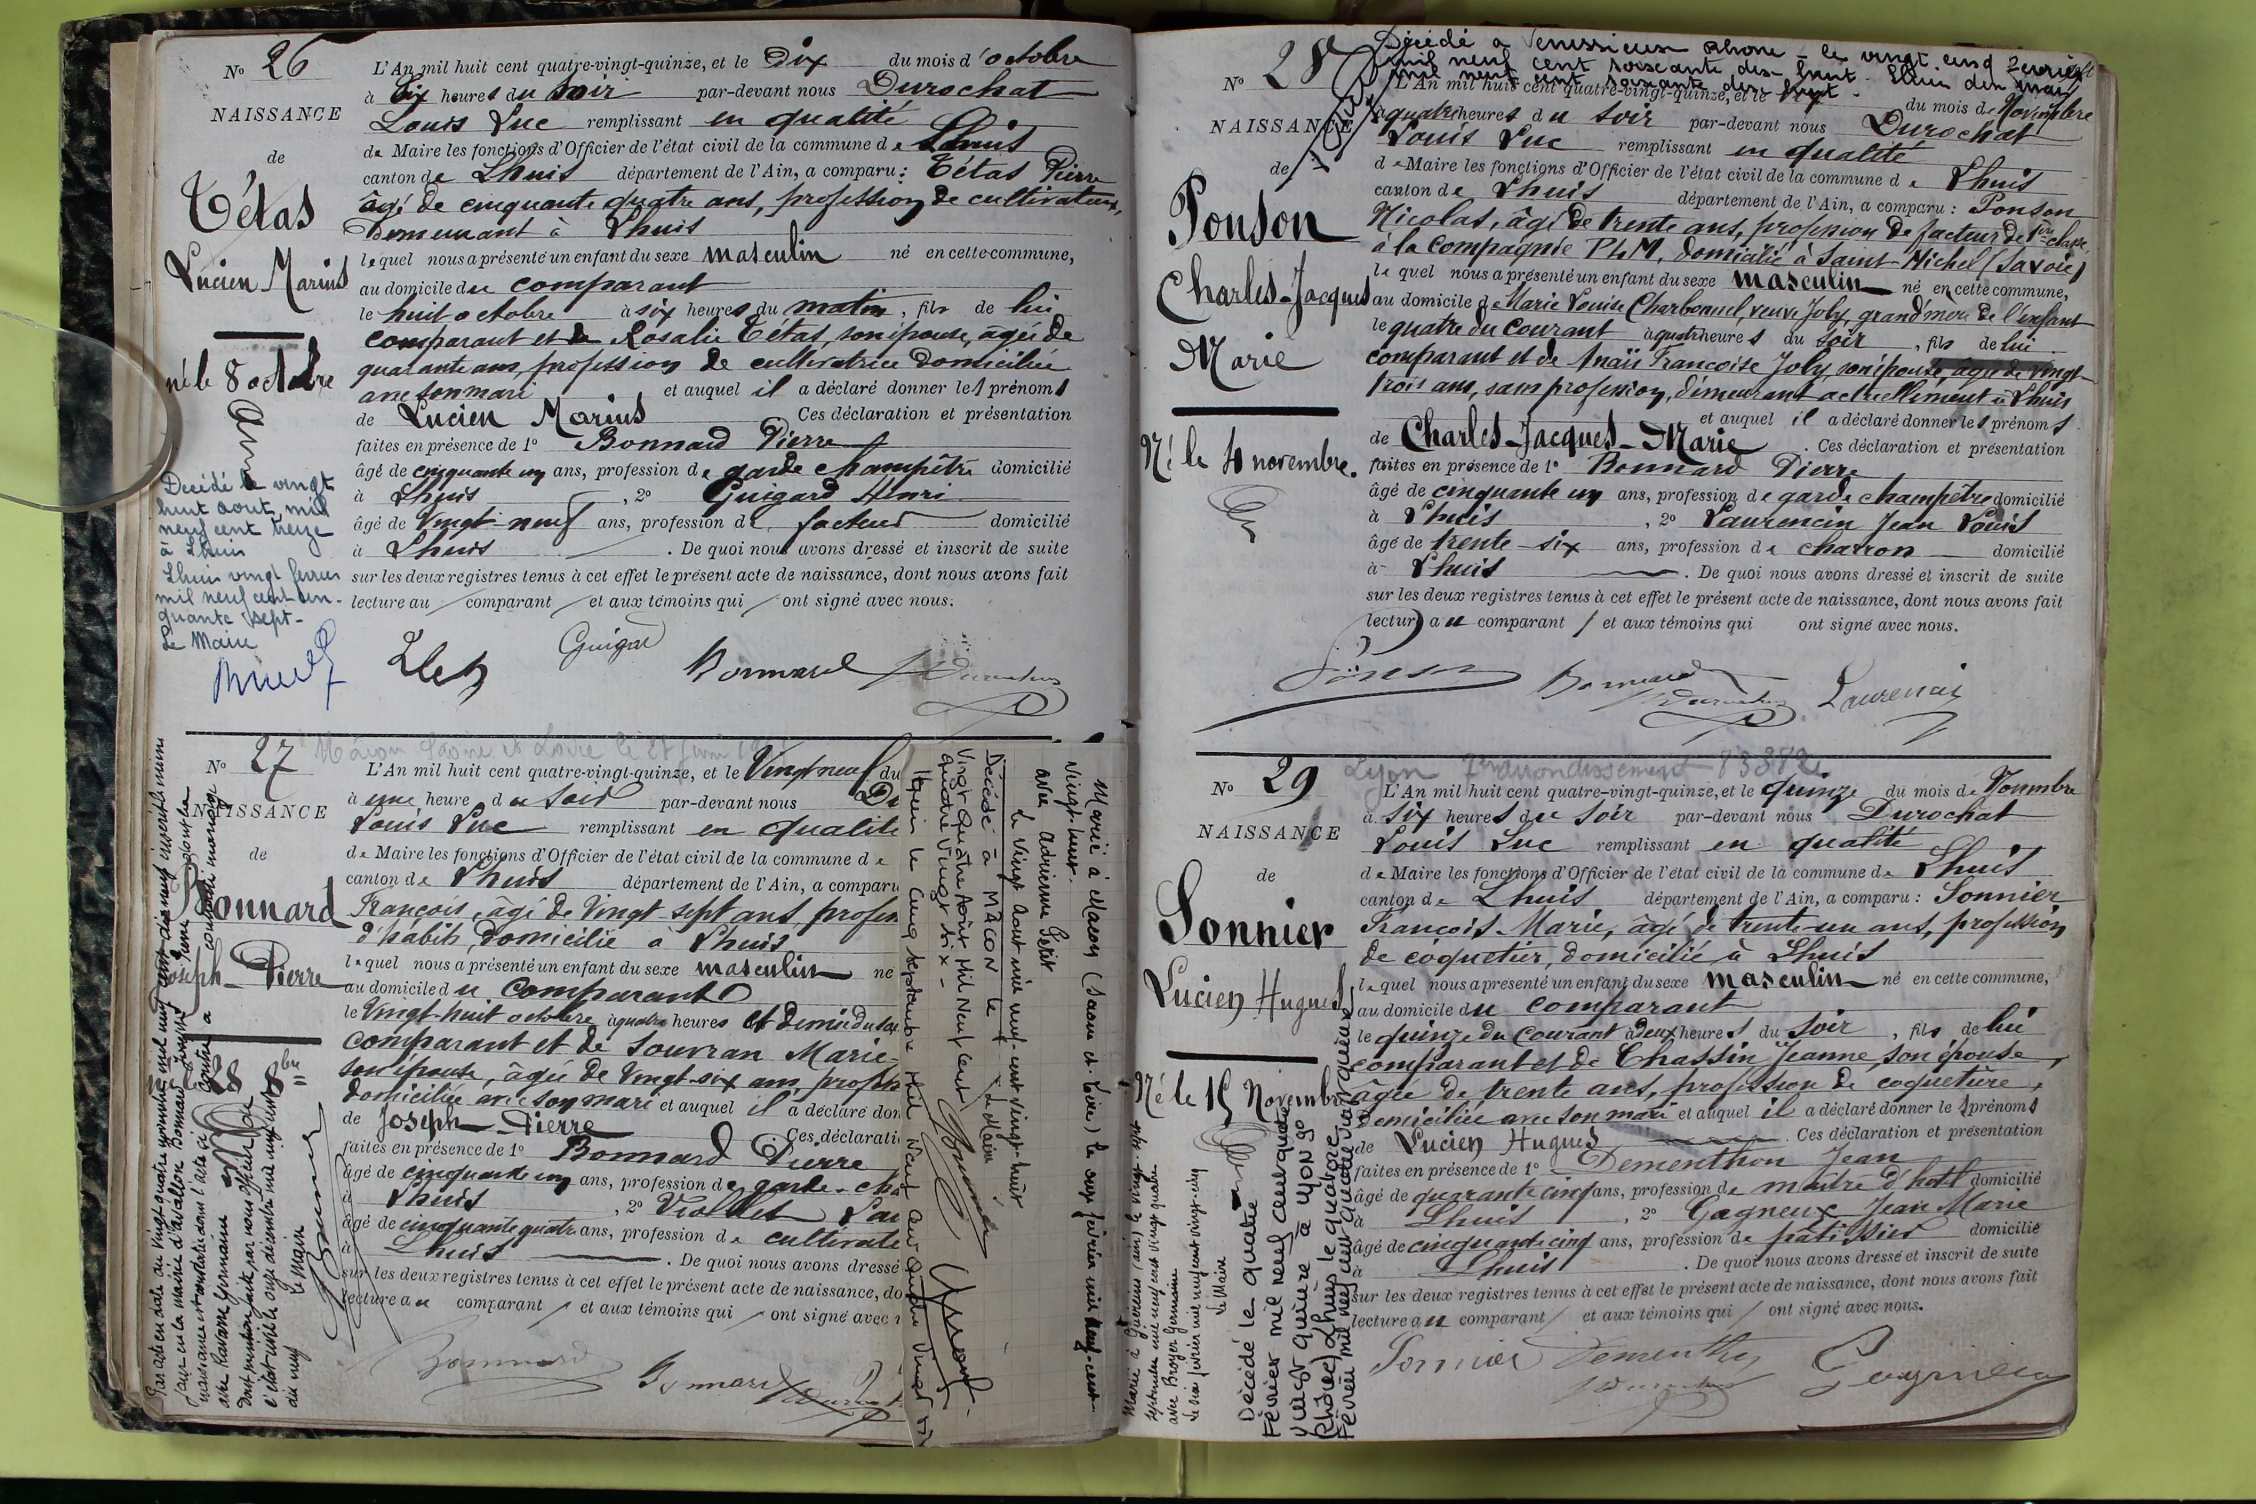 No 26
NAISSANCE
de
Tétas
Lucien Marius
né le 8 octobre
Décédé le vingt
huit août mil
neuf cent treize
à Lhuis
Lhuis vingt février
mil neuf cent cin-
quante sept-
Le Maire
L'An mil huit cent quatre-vingt-quinze, et le Dix du mois d'octobre
à six heures du soir par-devant nous Durochat
Louis Luc remplissant en qualité
de Maire les fonctions d'Officier de l'état civil de la commune de Lhuis
canton de Lhuis département de l'Ain, a comparu : Tétas Pierre
âgé de cinquante quatre ans, profession de cultivateur,
Demeurant à Lhuis
lequel nous a présenté un enfant du sexe masculin né en cette commune,
au domicile du comparant
le huit octobre à six heures du matin, fils de lui
comparant et de Rosalie Tétas, son épouse, âgée de
quarante ans, profession de cultivatrice domiciliée
avec son mari et auquel il a déclaré donner les prénoms
de Lucien Marius Ces déclaration et présentation
faites en présence de 1º Bonnard Pierre
âgé de cinquante un ans, profession de garde champêtre domicilié
à Lhuis , 2º Guigard Henri
âgé de vingt neuf ans, profession de facteur domicilié
à Lhuis . De quoi nous avons dressé et inscrit de suite
sur les deux registres tenus à cet effet le présent acte de naissance, dont nous avons fait
lecture au comparant et aux témoins qui ont signé avec nous.
Guigard Bonnard Durochat
No 27
NAISSANCE
de
Bonnard
Joseph-Pierre
28 8bre
Mâcon Saône et Loire le 21 juin
L'An mil huit cent quatre-vingt-quinze, et le Vingt neuf du
à une heure du soir par-devant nous Du
Louis Luc remplissant en qualité
de Maire les fonctions d'Officier de l'état civil de la commune de
canton de Lhuis département de l'Ain, a comparu
François, âgé de Vingt-sept ans, profess
d'habits, domicilié à Lhuis
lequel nous a présenté un enfant du sexe masculin né
au domicile du comparant
le Vingt-huit octobre à quatre heures et demie du soir
comparant et de Souvran Marie-
son épouse, âgée de Vingt-six ans, profess
domiciliée avec son mari et auquel il a déclaré don
de Joseph-Pierre Ces déclarati
faites en présence de 1º Bonnard Pierre
âgé de cinquante un ans, profession de garde-cha
à Lhuis , 2º Viollet Lau
âgé de cinquante quatre ans, profession de cultivate
à Lhuis . De quoi nous avons dressé
sur les deux registres tenus à cet effet le présent acte de naissance, do
lecture au comparant et aux témoins qui ont signé avec n
Bonnard Bonnard
Marié à Macon (Saone et Loire) le onze février mil neuf-cent-
vingt-huit.
avec Adrienne Petit
Le Vingt aout mil neuf-cent vingt-huit
Le Maire
Décédé à MACON le
vingt quatre Août Mil Neuf cent
quatre vingt six -
Lhuis le Cinq septembre Mil Neuf cent quatre Vingt six
No 28
NAISSANCE
de
Ponson
Charles-Jacques
Marie
Né le 4 novembre.
Décédé à Venissieux Rhone - le vingt cinq février
mil neuf cent soixante dix-huit. Lhuis dix mars
mil neuf cent soixante dix huit.
L'An mil huit cent quatre-vingt-quinze, et le du mois de Novembre
à quatre heures du soir par-devant nous Durochat
Louis Luc remplissant en qualité
de Maire les fonctions d'Officier de l'état civil de la commune de Lhuis
canton de Lhuis département de l'Ain, a comparu : Ponson
Nicolas, âgé de trente ans, profession de facteur de 1ère classe
à la Compagnie PLM, domicilié à Saint-Michel (Savoie)
lequel nous a présenté un enfant du sexe masculin né en cette commune,
au domicile de Marie Louise Charbonnel, veuve Joly, grand'mère de l'enfant
le quatre du courant à quatre heures du soir, fils de lui
comparant et de Anaïs Françoise Joly, son épouse âgée de vingt
trois ans, sans profession, demeurant actuellement à Lhuis
et auquel il a déclaré donner les prénoms
de Charles-Jacques-Marie . Ces déclaration et présentation
faites en présence de 1º Bonnard Pierre
âgé de cinquante un ans, profession de garde champêtre domicilié
à Lhuis , 2º Laurencin Jean Louis
âgé de trente-six ans, profession de charron domicilié
à Lhuis . De quoi nous avons dressé et inscrit de suite
sur les deux registres tenus à cet effet le présent acte de naissance, dont nous avons fait
lecture au comparant et aux témoins qui ont signé avec nous.
Ponson Bonnard Durochat Laurencin
No 29
NAISSANCE
de
Sonnier
Lucien Hugues
Né le 15 Novembre
Lyon 7e arrondissement
L'An mil huit cent quatre-vingt-quinze, et le quinze du mois de Novembre
à six heures du soir par-devant nous Durochat
Louis Luc remplissant en qualité
de Maire les fonctions d'Officier de l'état civil de la commune de Lhuis
canton de Lhuis département de l'Ain, a comparu : Sonnier
François-Marie, âgé de trente-un ans, profession
de coquetier, domicilié à Lhuis
lequel nous a présenté un enfant du sexe masculin né en cette commune,
au domicile du comparant
le quinze du courant à deux heures du soir, fils de lui
comparant et de Chassin Jeanne, son épouse,
âgée de trente ans, profession de coquetière,
domiciliée avec son mari et auquel il a déclaré donner les prénoms
de Lucien Hugues . Ces déclaration et présentation
faites en présence de 1º Dementhon Jean
âgé de quarante cinq ans, profession de maître d'hôtel domicilié
à Lhuis , 2º Gagneux Jean Marie
âgé de cinquante cinq ans, profession de pâtissier domicilié
à Lhuis . De quoi nous avons dressé et inscrit de suite
sur les deux registres tenus à cet effet le présent acte de naissance, dont nous avons fait
lecture au comparant et aux témoins qui ont signé avec nous.
Sonnier Dementhon Durochat Gagneux
septembre mil neuf cent vingt quatre
avec Broyer Germaine
Le six février mil neuf cent vingt-cinq
Le Maire
Décédé le quatre
Février mil neuf cent quatre
vingt quinze à Lyon 9e
(Rhône) Lhuis le quatorze
Février mil neuf cent quatre vingt quinze